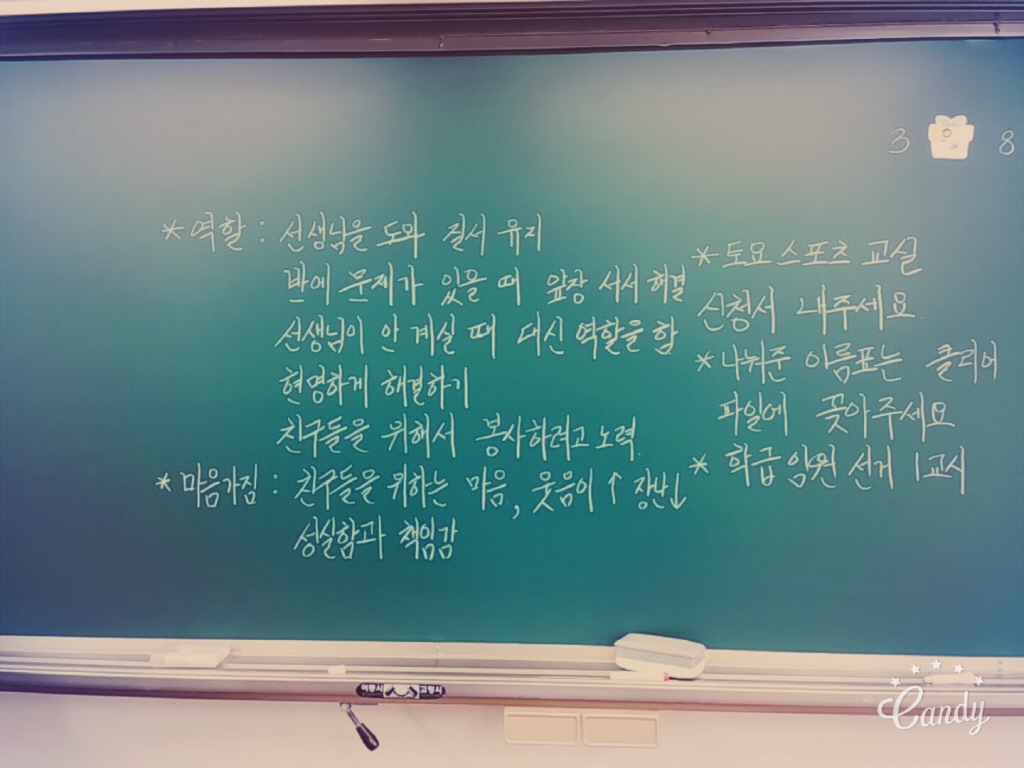 3 월 8
* 역할 : 선생님을 도와 질서 유지
반에 문제가 있을 때 앞장 서서 해결
선생님이 안 계실 때 대신 역할을 함
현명하게 해결하기
친구들을 위해서 봉사하려고 노력
* 마음가짐 : 친구들을 위하는 마음, 웃음이 ↑ 장난↓
성실함과 책임감
* 토요 스포츠 교실
신청서 내주세요.
* 나눠준 이름표는 클리어
파일에 꽂아주세요
* 학급 임원 선거 1교시
이동시 고정시
Candy